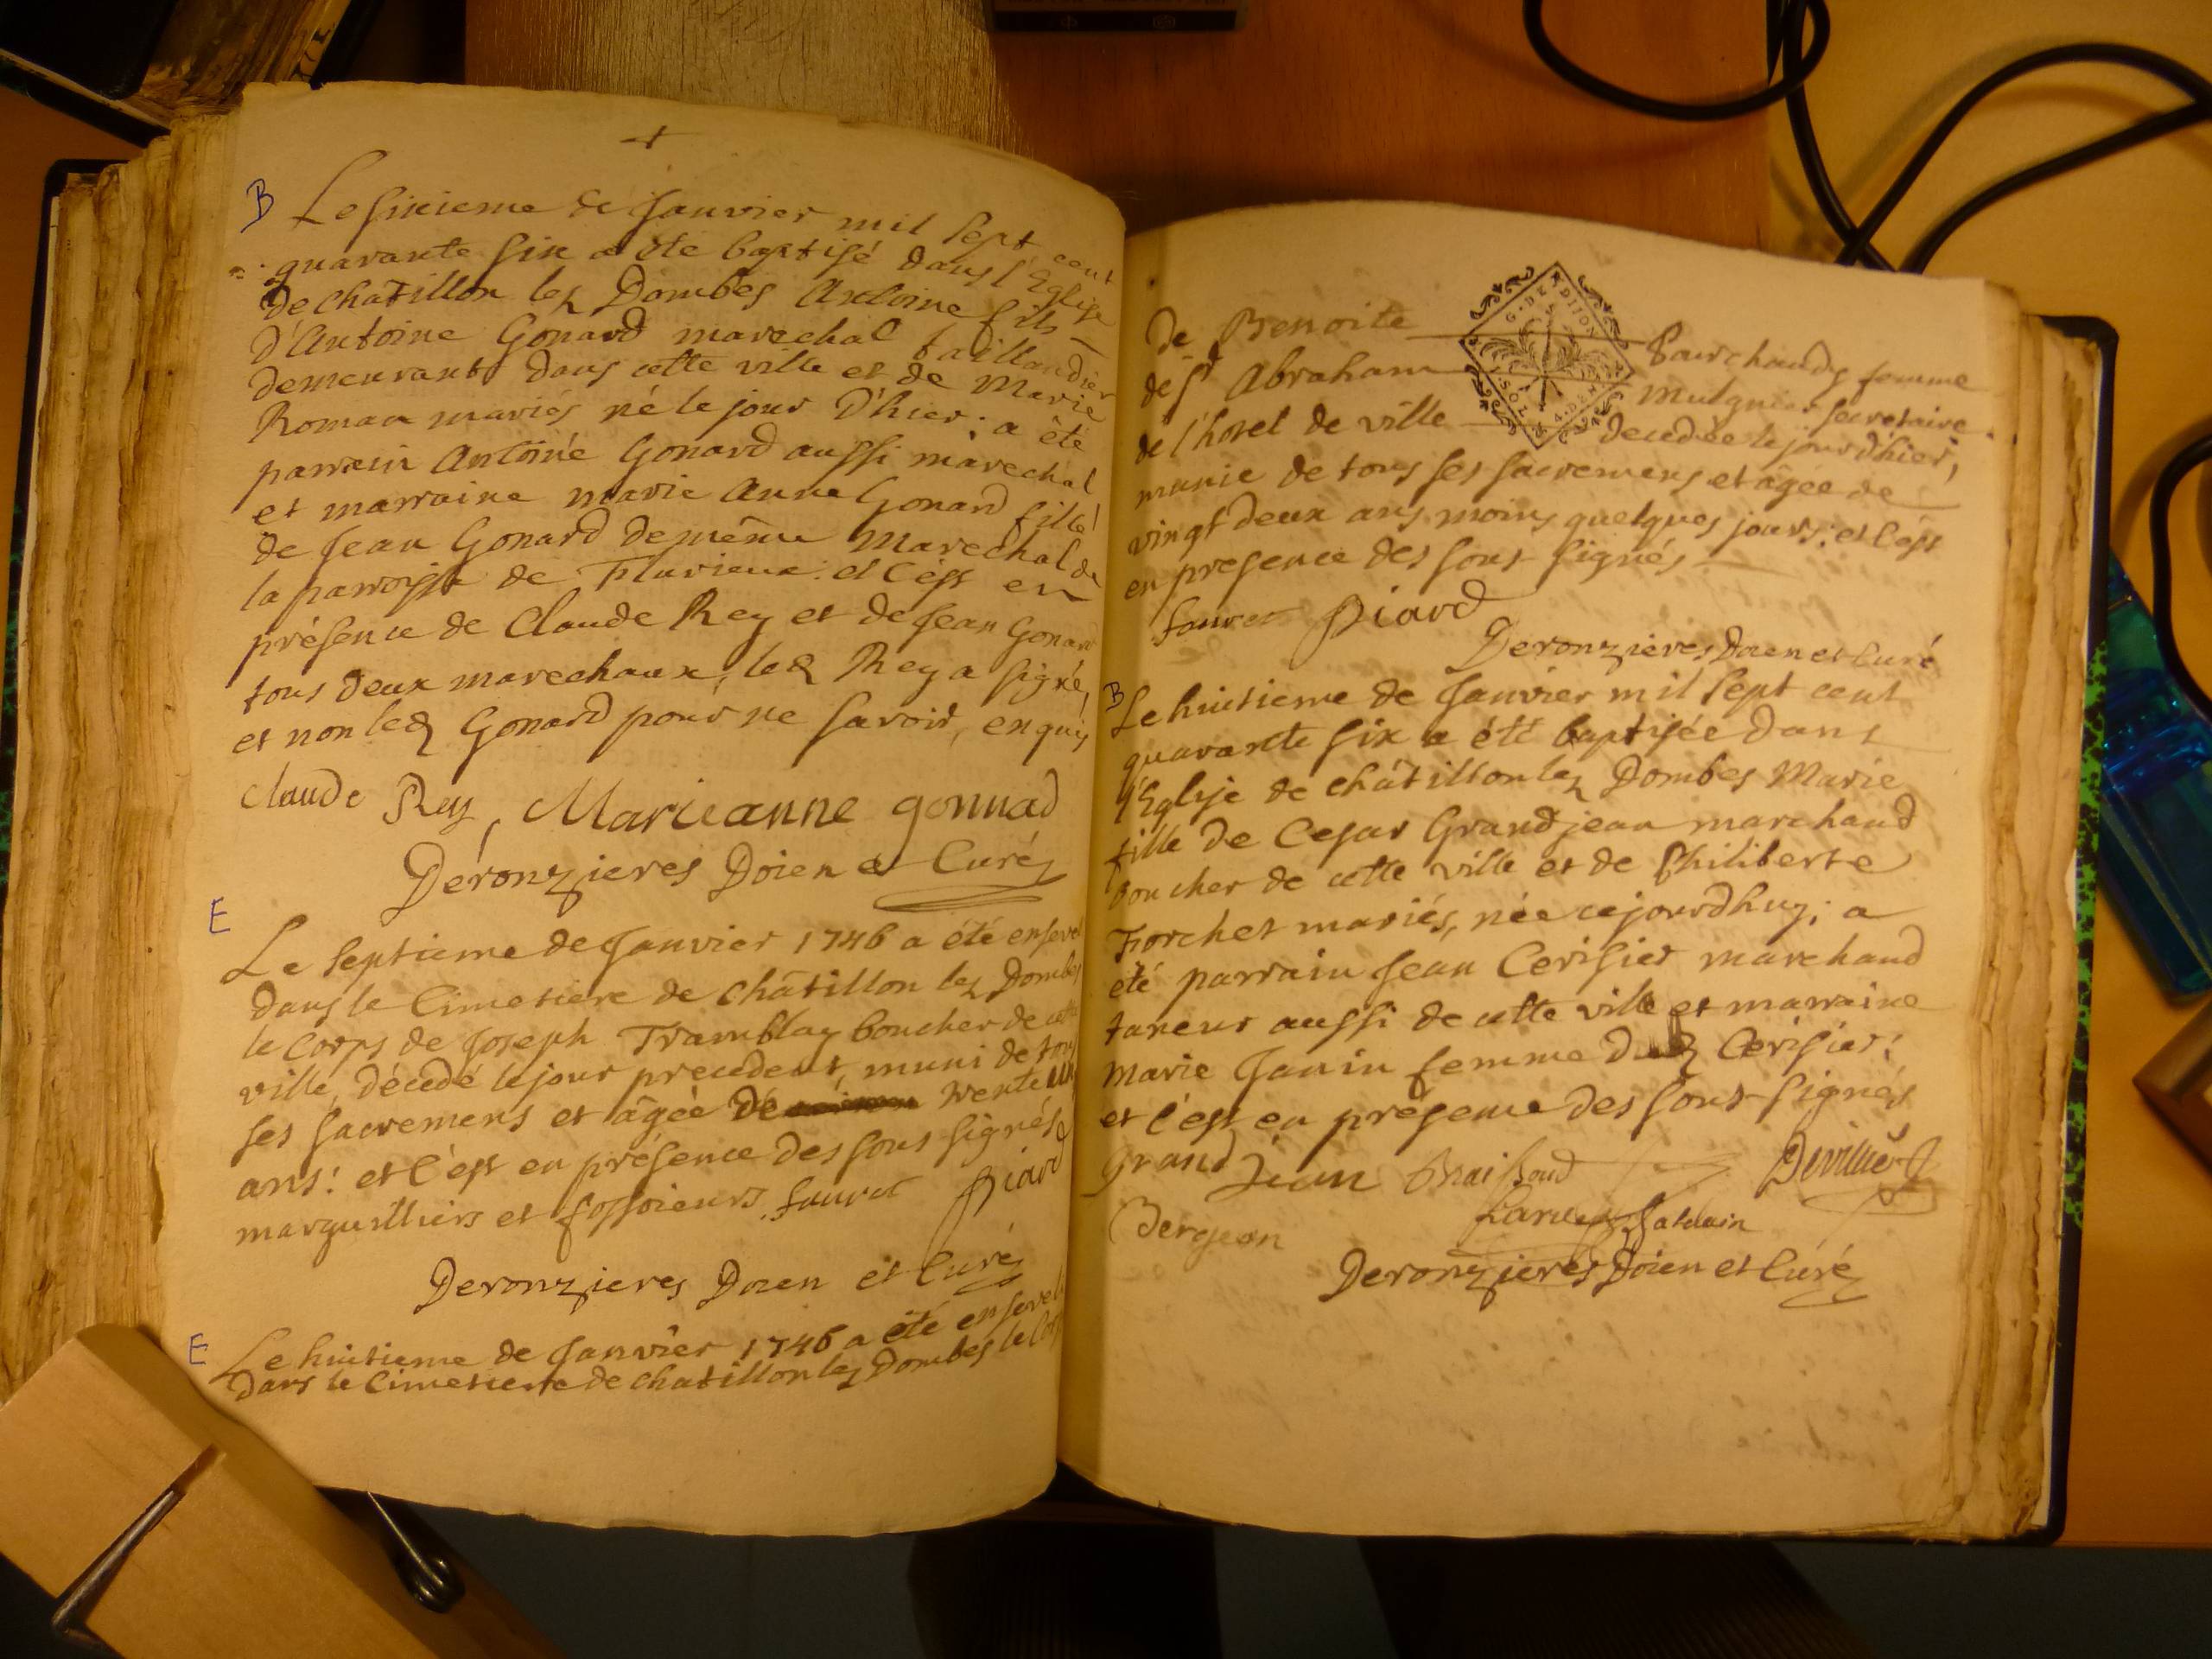 B Le sixieme de Janvier mil sept cent
quarante six a été baptisé dans l'Eglise
de chatillon lez Dombes Antoine fils
d'Antoine Gonard marechal taillandier
demeurant dans cette ville et de Marie
Roman mariés né le jour d'hier; a été
parrain Antoine Gonard aussi marechal
et marraine marie Anne Gonard fille
de Jean Gonard de même Marechal de
la parroisse de Flurieux. et c'est en
présence de Claude Rey et de Jean Gonard
tous deux marechaux, led Rey a signé,
et non led Gonard pour ne savoir, enquis
claude Rey, Marieanne gonnad
Deronzieres Doien et Curé
E
Le septieme de Janvier 1746 a été enseveli
dans le Cimetiere de châtillon lez Dombes
le Corps de Joseph Tramblay boucher de cette
ville, décedé le jour precedent, muni de tous
ses sacremens et âgée de trente un
ans: et c'est en présence des sous signés
marguilliers et fossoieurs. fauret Piard
Deronzieres Doien et Curé
E Le huitieme de Janvier 1746 a été enseveli
dans le Cimetiere de chatillon lez Dombes le Corps
de Benoite
G. DE DIJON
Sourchaudy femme
de Sr Abraham
Mulquier secretaire
de l'hotel de ville
decedée le jour d'hier,
munie de tous ses sacremens et âgée de
vingt deux ans moins quelques jours: et c'est
en presence des sous signés
fauret Piard
Deronzieres Doien et Curé
B
Le huitieme de Janvier mil sept cent
quarante six a été baptisée dans
l'Eglise de châtillon lez Dombes Marie
fille de Cesar Grandjean marchand
boucher de cette ville et de Philiberte
Forchet mariés, née cejourd'huy; a
été parrain Jean Cerisier marchand
taneur aussi de cette ville et marraine
Marie Janin femme dud Cerisier;
et c'est en présence des sous-signés
Grand Jean
Bergeon
Deronzieres Doien et Curé